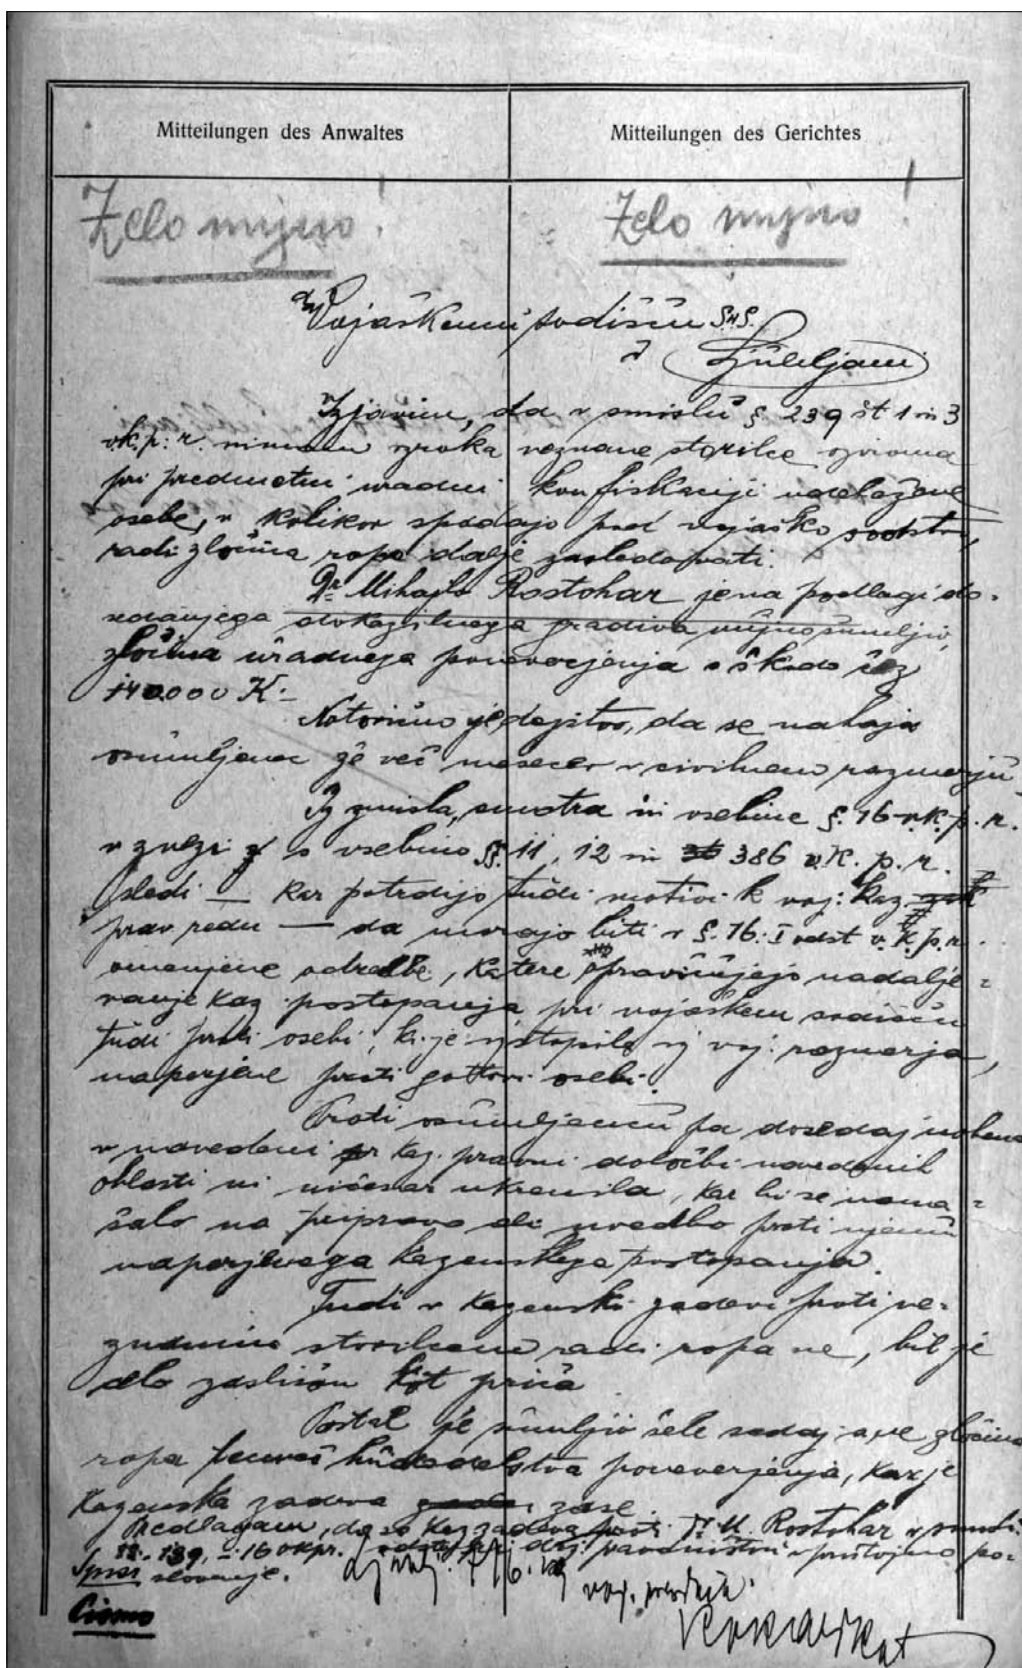 Mitteilungen des Anwaltes
Mitteilungen des Gerichtes
Zelo nujno!
Zelo nujno!
Vojaškemu sodišču SHS.
v Ljubljani
Izjavim, da v smislu §. 239 št 1 in 3
v.k.p.r. nimam vzroka neznane storilce oziroma
pri predmetni uradni konfiskaciji udeležene
osebe, v kolikor spadajo pod vojaško sodstvo,
radi zločina ropa dalje zasledovati.
Dr. Mihajlo Rostohar je na podlagi do-
sedanjega dokazilnega gradiva nujno sumljiv
zločina uradnega poneverjenja s škodo čez
140.000 K.-
Notorično je dejstvo, da se nahaja
osumljenec že več mesecev v civilnem razmerju
Iz zmisla, smotra in vsebine §. 16 v.k.p.r.
v zvezi s vsebino §§. 11, 12 in 386 v.k.p.r.
sledi — kar potrdijo tudi motivi k voj. kaz.
prav. redu — da morajo biti v §. 16. I odst v.k.p.r.
omenjene odredbe, katere opravičujejo nadalje-
vanje kaz. postopanja pri vojaškem sodišču
tudi proti osebi, ki je izstopila iz voj. razmerja,
naperjene proti gotovi osebi.
Proti osumljencu pa dosedaj nobena
v navedeni kaz. pravni določbi navedenih
oblasti ni ničesar ukrenila, kar bi se nana-
šalo na pripravo ali uvedbo proti njemu
naperjenega kazenskega postopanja.
Tudi v kazenski zadevi proti ne-
znanim storilcem radi ropa ne, bil je
le zaslišan kot priča
Postal je sumljiv šele sedaj a ne zločina
ropa temveč hudodelstva poneverjenja, kar je
kazenska zadeva zase.
Predlagam, da se kaz. zadeva proti Dr. M. Rostohar v smislu
drž. pravdništvu v pristojno po-
slovanje.